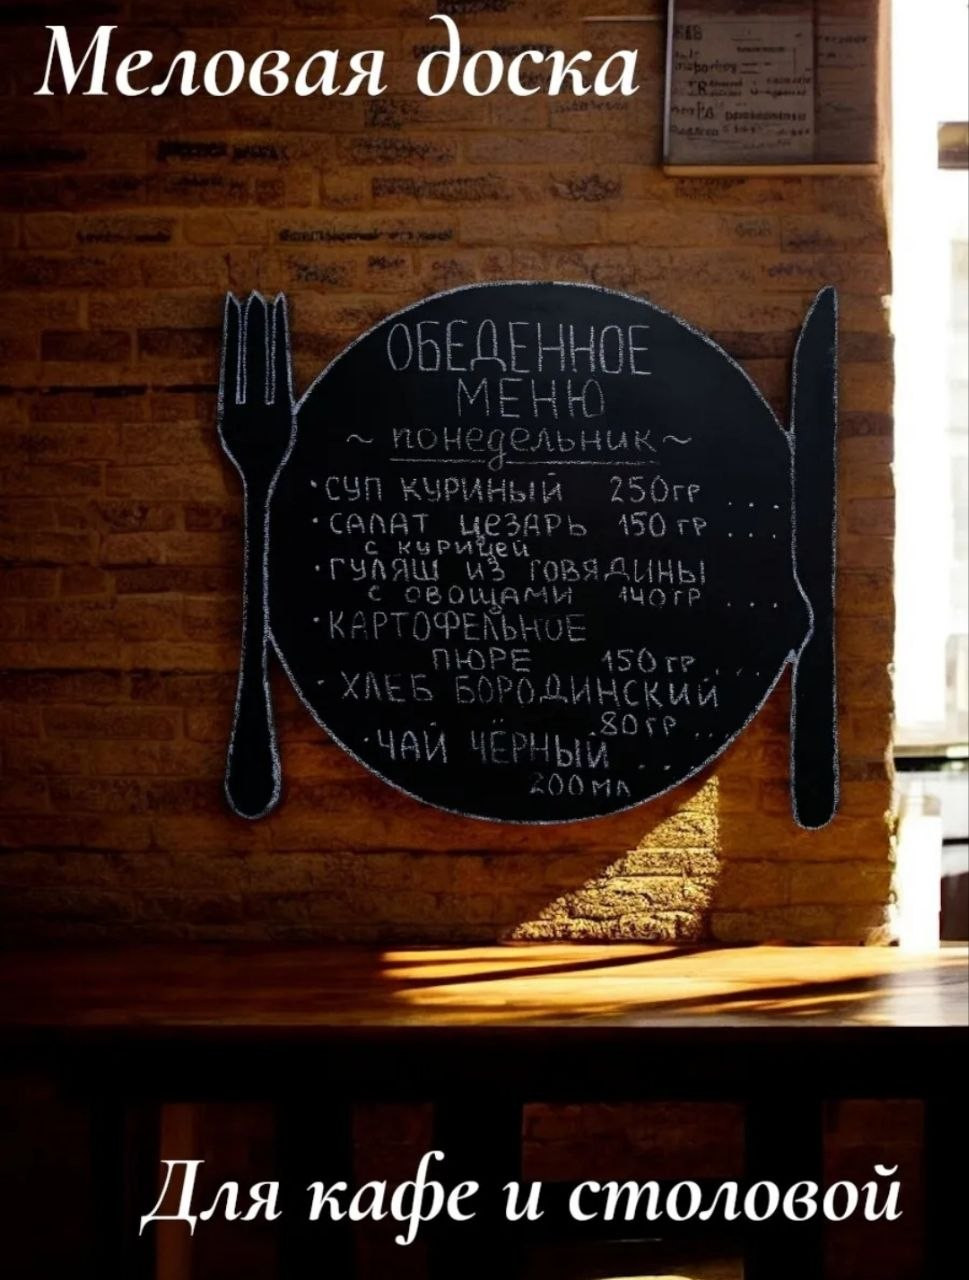 Меловая доска
ОБЕДЕННОЕ
МЕНЮ
~ понедельник ~
·СУП КУРИНЫЙ 250гр ...
·САЛАТ ЦЕЗАРЬ 150 гр ...
с курицей
·ГУЛЯШ ИЗ ГОВЯДИНЫ
с овощами 140гр ...
·КАРТОФЕЛЬНОЕ
ПЮРЕ 150 гр ...
· ХЛЕБ БОРОДИНСКИЙ
80гр ...
·ЧАЙ ЧЁРНЫЙ ...
200мл
Для кафе и столовой